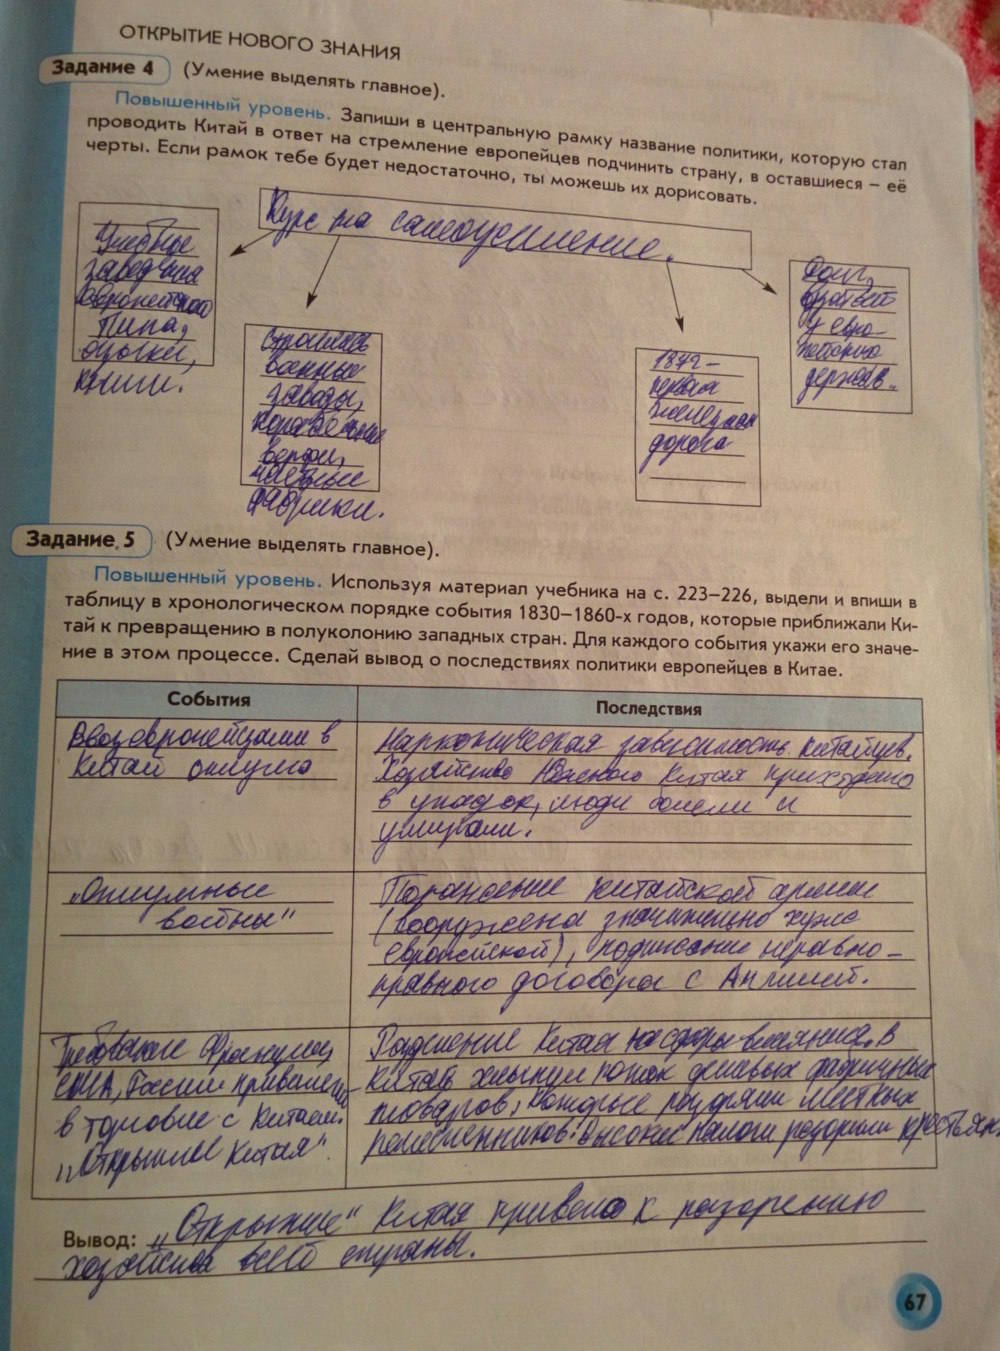 ОТКРЫТИЕ НОВОГО ЗНАНИЯ
Задание 4 (Умение выделять главное).
Повышенный уровень. Запиши в центральную рамку название политики, которую стал
проводить Китай в ответ на стремление европейцев подчинить страну, в оставшиеся – её
черты. Если рамок тебе будет недостаточно, ты можешь их дорисовать.
Курс на самоусиление.
Учебные
заведения
европейского
типа,
книги.
строились
военные
заводы,
корабельные
верфи,
частные
фабрики.
первая
железная
дорога
у евро-
держав.
Задание 5 (Умение выделять главное).
Повышенный уровень. Используя материал учебника на с. 223–226, выдели и впиши в
таблицу в хронологическом порядке события 1830–1860-х годов, которые приближали Ки-
тай к превращению в полуколонию западных стран. Для каждого события укажи его значе-
ние в этом процессе. Сделай вывод о последствиях политики европейцев в Китае.
События
Последствия
Ввоз европейцами в
Китай опиума
Наркотическая зависимость китайцев.
Хозяйство Южного Китая приходило
в упадок, люди болели и
умирали.
„Опиумные
войны"
Поражение китайской армии
(вооружена значительно хуже
европейской), подписание неравно-
правного договора с Англией.
Требование Франции,
США, России привилегий
в торговле с Китаем.
„Открытие Китая".
Разделение Китая на сферы влияния. В
Китай хлынул поток дешёвых фабричных
товаров, которые разоряли местных
ремесленников. Высокие налоги разорили крестьян.
Вывод: „Открытие" Китая привело к разорению
хозяйства всей страны.
67